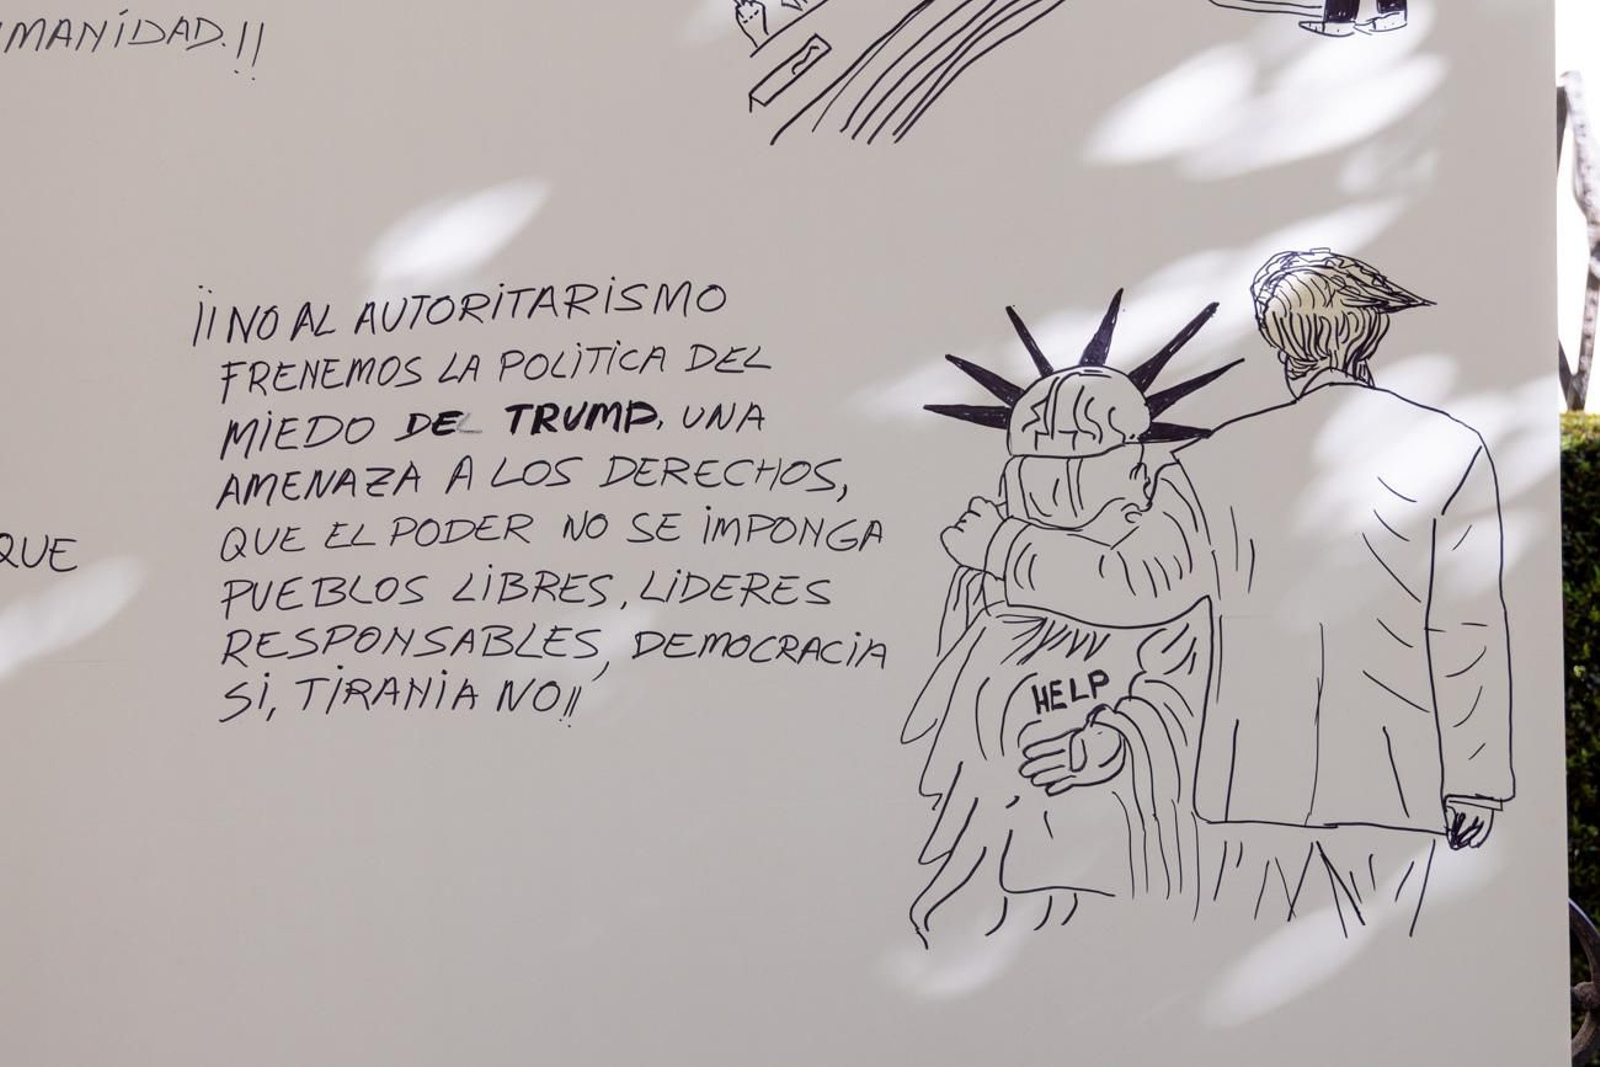 MANIDAD.!!
¡¡NO AL AUTORITARISMO
FRENEMOS LA POLITICA DEL
MIEDO DE TRUMP, UNA
AMENAZA A LOS DERECHOS,
QUE EL PODER NO SE IMPONGA
PUEBLOS LIBRES, LIDERES
RESPONSABLES, DEMOCRACIA
SI, TIRANIA NO!!
QUE
HELP